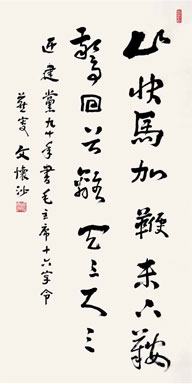 山快馬加鞭未下鞍
驚回首離天三尺三
迎建黨九十年書毛主席十六字令
燕叟文懷沙